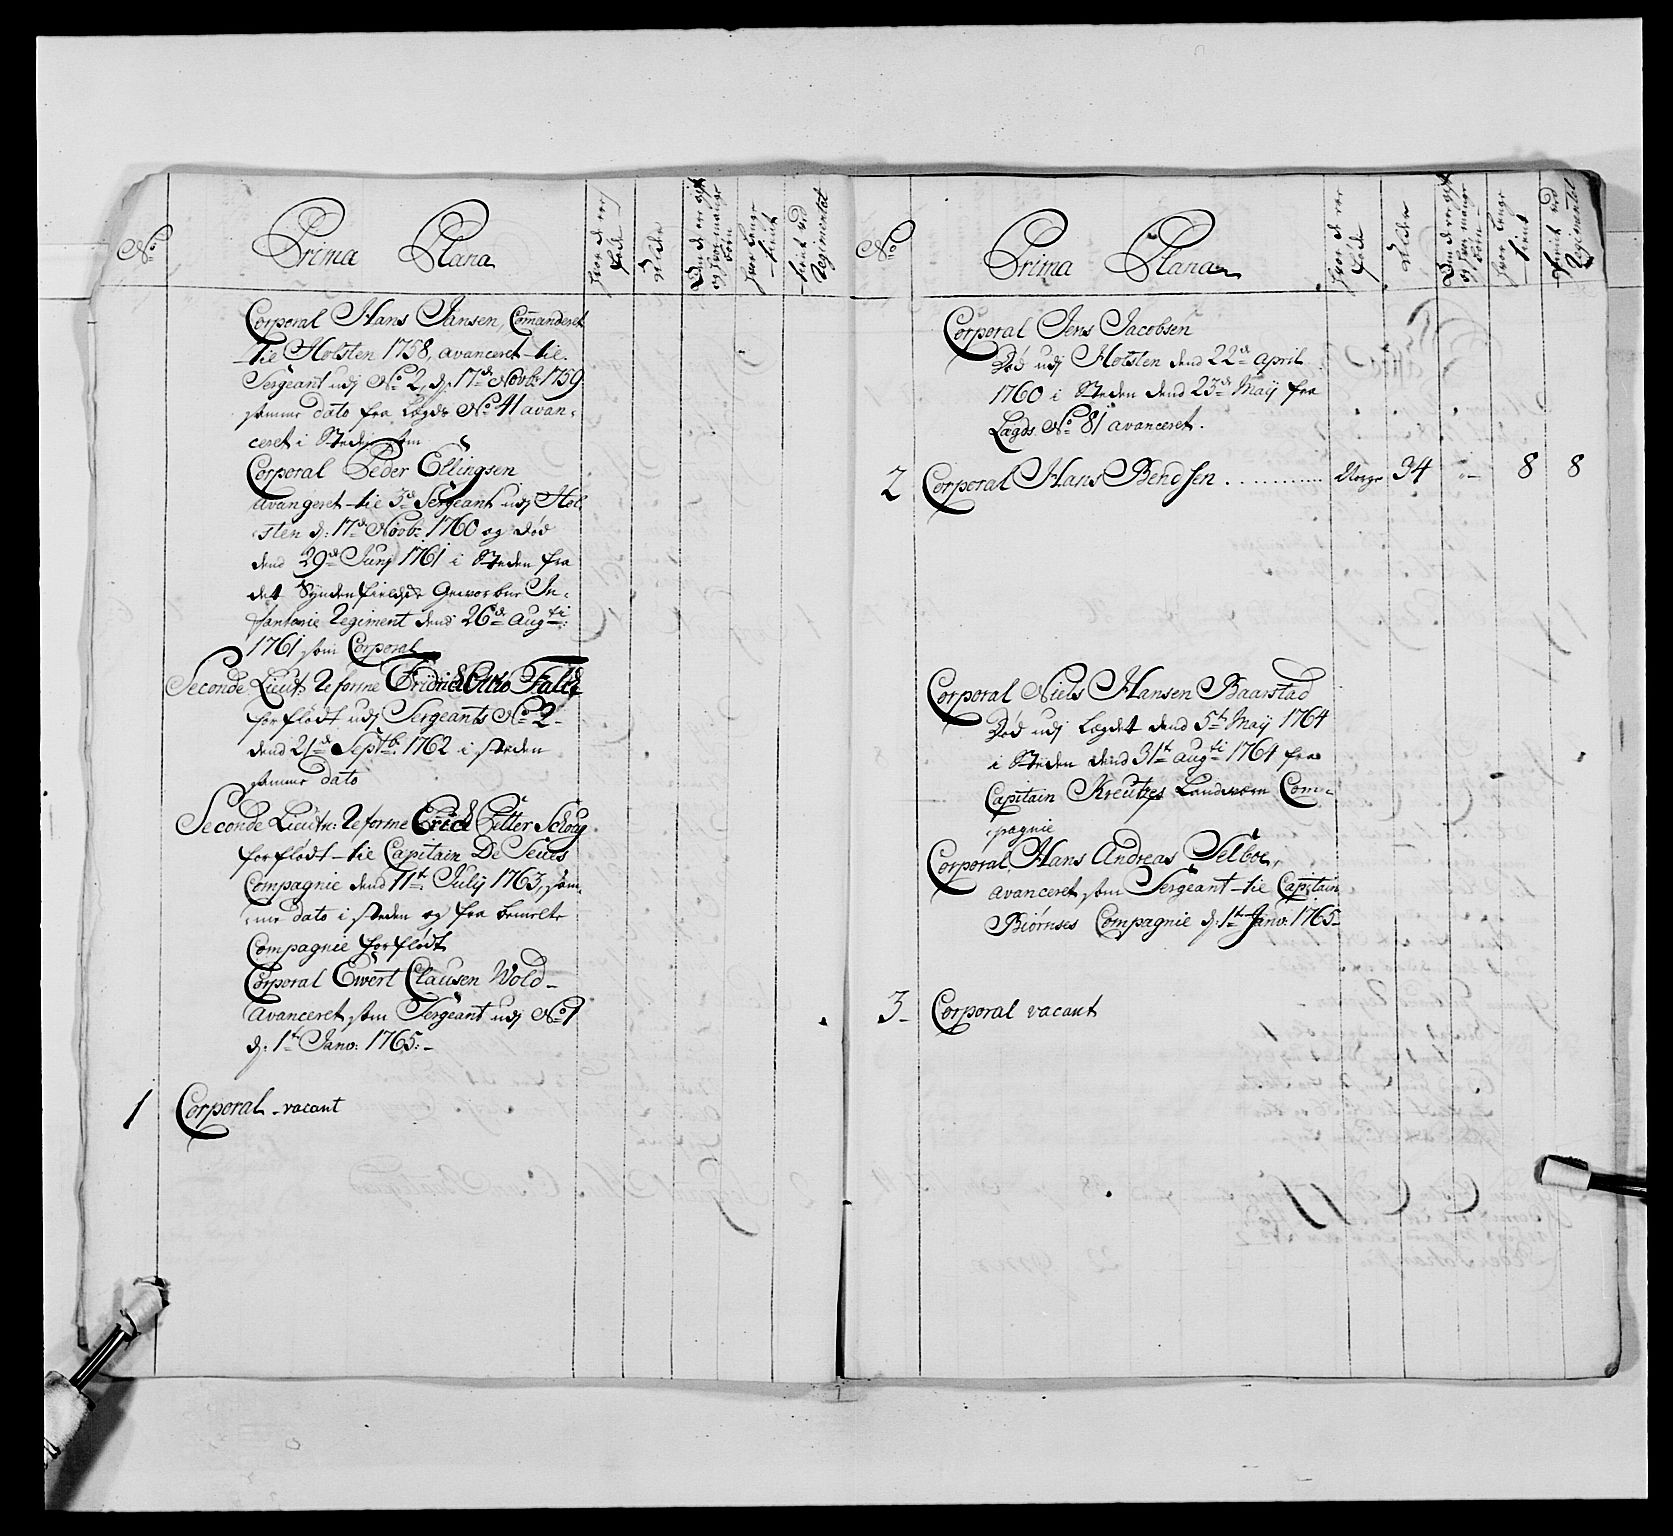 No
Prima Plana
hvor de er
fødde
Alder
Om de er gift
og hvor mange
børn
hvor længe
tient
tient ved
Regimentet
Corporal Hans Jansen, Commanderet
til Holsten 1758, avanceret til
Sergeant udj No 2, d: 17de Novbr 1759
samme dato fra Lægds No 41 avan-
ceret i Steden som
Corporal Peder Ellingsen
avangeret til 3de Sergeant udj Hol
sten d: 17de Novbr 1760 og død
dend 29de Junj 1761 i Steden fra
det Syndenfieldske Gevorbne In-
fanterie Regiment dend 26de Augti:
1761 som Corporal
Seconde Lieut: Reforme Fridrich Falck
forflødt udj Sergeants No 2
dend 21de Septbr 1762 i steden
samme dato
Seconde Lieutn: Reforme Erich Petter Schoug
forflødt til Capitain De Seues
Compagnie dend 11te July 1763, sam-
me dato i steden og fra bemelte
Compagnie forflødt
Corporal Ewert Clausen Wold
Avanceret som Sergeant udj No 1
d: 1te Janv: 1765:
1 Corporal vacant
No
Prima Plana
hvor de er
fødde
Alder
Om de er gift
og hvor mange
børn
hvor længe
tient
tient ved
Regimentet
Corporal Jens Jacobsen
Død udj Holsten dend 22de April
1760 i Steden dend 23de Maij fra
Lægds No 81 avanceret.
2 Corporal Hans Bendsen . . . . . . . . . . . Norge 34 8 8
Corporal Niels Hansen Baarstad
Død udj Lægdet dend 5te Maij 1764
i Steden dend 31te Augti 1764 fra
Capitain Kreutzes Landværn Com-
pagnie
Corporal Hans Andreas Selboe,
avanceret som Sergeant til Capitain
Biørnses Compagnie d: 1te Janv: 1765
3 Corporal vacant